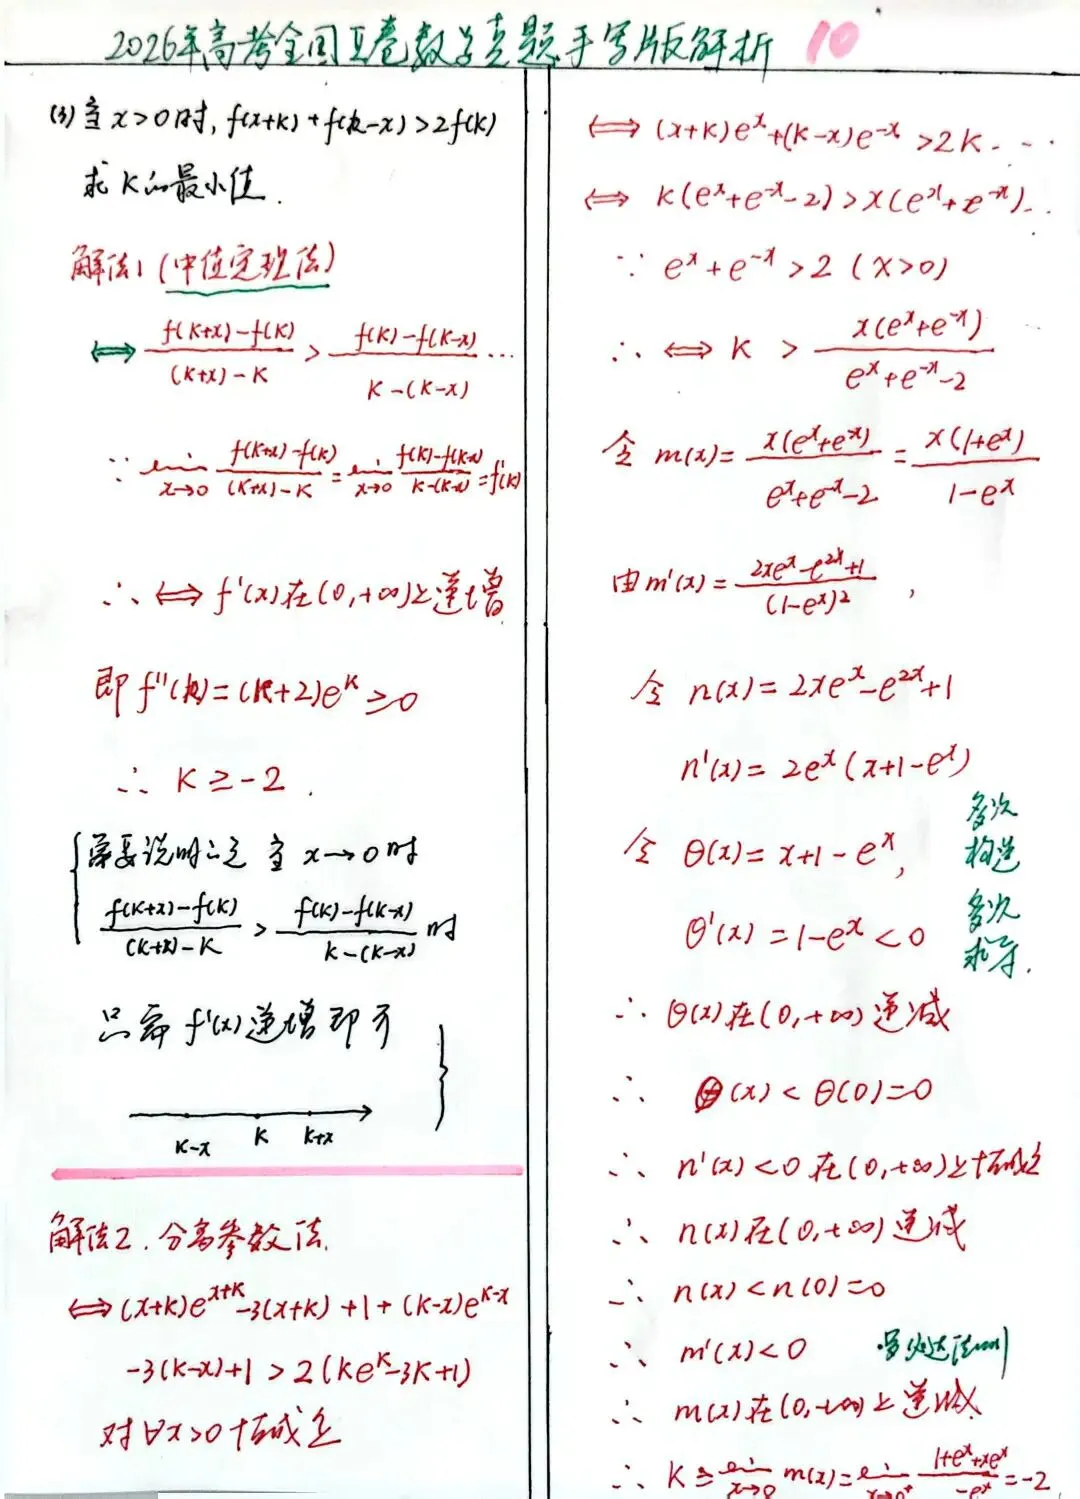 2026年高考全国I卷数学真题手写版解析 10
(3) 当 x>0时, f(x+k)+f(k-x)>2f(k)
求 k的最小值.
解法1 (中值定理法)
⟺ (f(k+x)-f(k))/((k+x)-k) > (f(k)-f(k-x))/(k-(k-x)) ...
∵ lim_{x→0} (f(k+x)-f(k))/((k+x)-k) = lim_{x→0} (f(k)-f(k-x))/(k-(k-x)) = f'(k)
∴ ⟺ f'(x)在(0,+∞)上递增
即 f''(k)=(k+2)e^k ≥0
∴ k≥-2.
需要说明的是 当 x→0时
(f(k+x)-f(k))/((k+x)-k) > (f(k)-f(k-x))/(k-(k-x)) 时
只需 f'(x)递增即可
k-x k k+x
解法2. 分离参数法.
⟺ (x+k)e^{x+k}-3(x+k)+1+(k-x)e^{k-x}
-3(k-x)+1>2(ke^k-3k+1)
对∀x>0恒成立
⟺ (x+k)e^x+(k-x)e^{-x}>2k...
⟺ k(e^x+e^{-x}-2)>x(e^{-x}+e^{-x})..
∵ e^x+e^{-x}>2 (x>0)
∴ ⟺ k > x(e^x+e^{-x})/(e^x+e^{-x}-2)
令 m(x)= x(e^x+e^{-x})/(e^x+e^{-x}-2) = x(1+e^x)/(1-e^x)
由m'(x)= (2xe^x-e^{2x}+1)/(1-e^x)^2 ,
令 n(x)=2xe^x-e^{2x}+1
n'(x)=2e^x(x+1-e^x)
令 θ(x)=x+1-e^x,
θ'(x)=1-e^x<0
多次
构造
多次
求导.
∴ θ(x)在(0,+∞)递减
∴ θ(x)<θ(0)=0
∴ n'(x)<0在(0,+∞)上恒成立
∴ n(x)在(0,+∞)递减
∴ n(x)<n(0)=0
∴ m'(x)<0 洛必达法则
∴ m(x)在(0,+∞)上递减
∴ k≥lim_{x→0} m(x)=lim_{x→0^+} (1+e^x+xe^x)/(-e^x)=-2